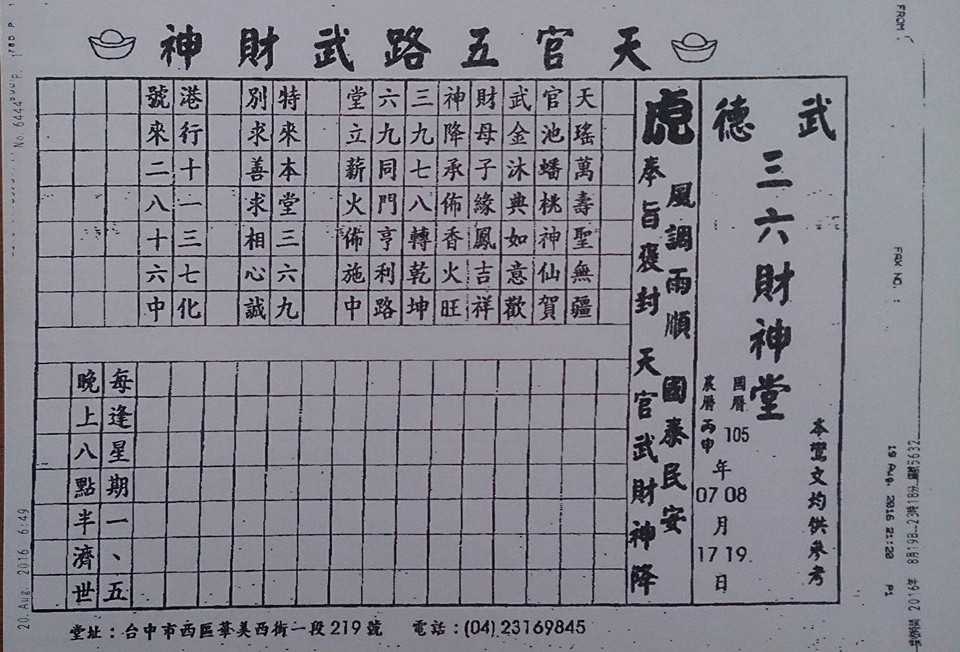 天官五路武財神
武德
三六財神堂
本鸞文均供參考
國曆 105 年 08 月 19 日
農曆 丙申 年 07 月 17 日
虎
風調雨順 國泰民安
奉旨褒封 天官武財神降
天瑤萬壽聖無疆
官池蟠桃神仙賀
武金沐典如意歡
財母子緣鳳吉祥
神降承佈香火旺
三九七八轉乾坤
六九同門亨利路
堂立薪火佈施中
特來本堂三六九
別求善求相心誠
港行十一三七化
號來二八十六中
每逢星期一、五
晚上八點半濟世
堂址：台中市西區華美西街一段219號 電話：(04) 23169845
FROM
FAX NO. :
19 Aug. 2016 21:20 P1
20 Aug. 2016 6:49
No. 6444 P. 1